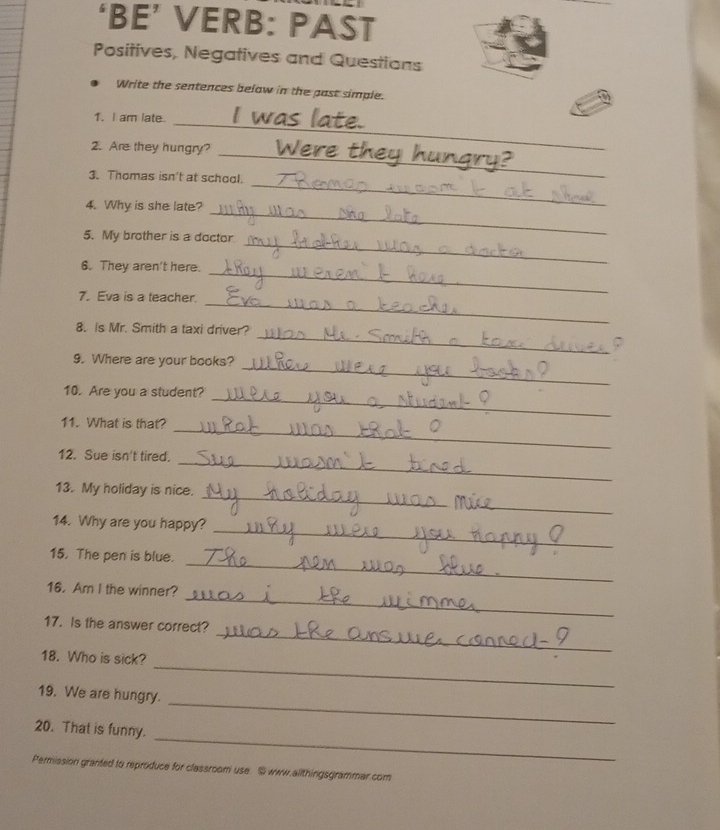 'BE' VERB: PAST
Positives, Negatives and Questions
• Write the sentences below in the past simple.
1. I am late. I was late.
2. Are they hungry? Were they hungry?
3. Thomas isn't at school. Thomas wasn't at school
4. Why is she late? why was she late
5. My brother is a doctor my brother was a doctor
6. They aren't here. they weren't here.
7. Eva is a teacher. Eva was a teacher
8. Is Mr. Smith a taxi driver? was Mr. Smith a taxi driver?
9. Where are your books? where were you books?
10. Are you a student? were you a student?
11. What is that? what was that?
12. Sue isn't tired. Sue wasn't tired
13. My holiday is nice. My holiday was nice
14. Why are you happy? why were you happy?
15. The pen is blue. The pen was blue.
16. Am I the winner? was i the winner
17. Is the answer correct? was the answer correct?
18. Who is sick?
19. We are hungry.
20. That is funny.
Permission granted to reproduce for classroom use. © www.allthingsgrammar.com